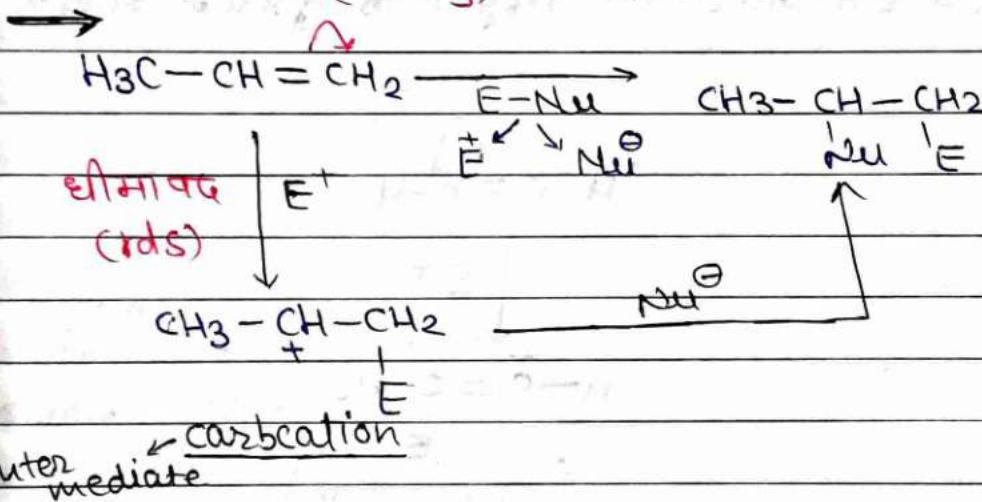 H3C-CH=CH2 → E-Nu CH3-CH-CH2
E+ Nu⊖ Nu E
धीमा पद E+
(rds)
Nu⊖
CH3-CH-CH2
+
E
carbcation
mediate